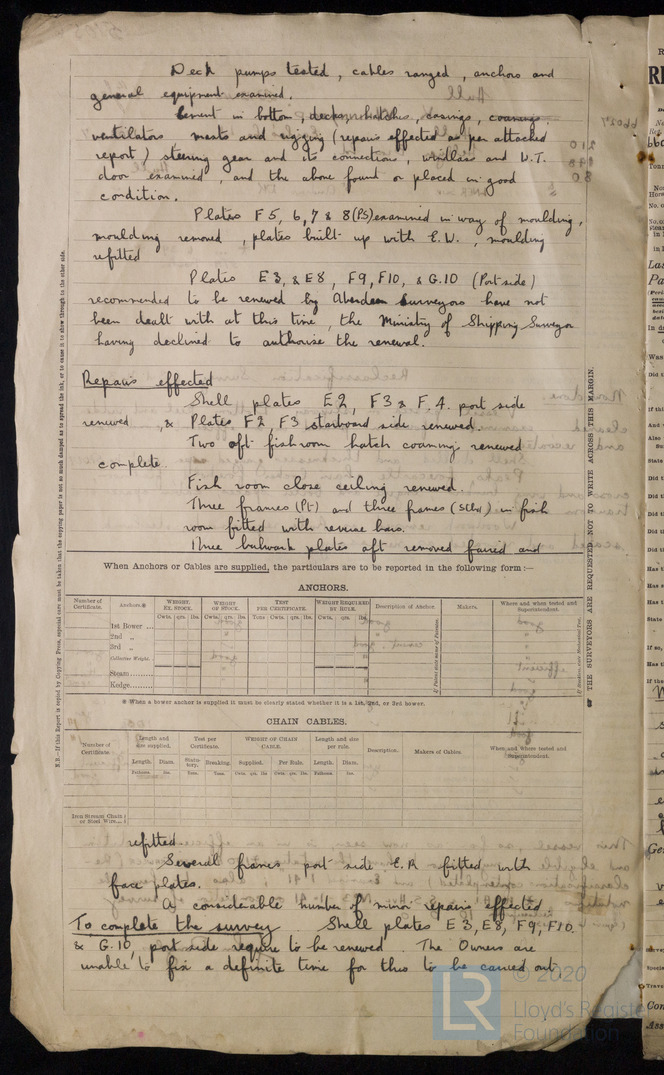 Deck pumps tested, cables ranged, anchors and
general equipment examined.
Cement in bottom, decks, hatches, casings, coamings
ventilators masts and rigging (repairs effected as per attached
report) steering gear and its connections, windlass and W.T.
door examined, and the above found or placed in good
condition.
Plates F5, 6, 7 & 8 (PS) examined in way of moulding,
moulding removed, plates built up with E.W., moulding
refitted
Plates E3, & E8, F9, F10, & G.10 (Port side)
recommended to be renewed by Aberdeen Surveyors have not
been dealt with at this time, the Ministry of Shipping Surveyor
having declined to authorise the renewal.
Repairs effected
Shell plates E2, F3 & F.4. port side
renewed, & Plates F2, F3 starboard side renewed.
Two aft fishroom hatch coamings renewed
complete.
Fish room close ceiling renewed.
Three frames (Pt) and three frames (Stbd) in fish
room fitted with reverse bars.
Three bulwark plates aft removed faired and
When Anchors or Cables are supplied, the particulars are to be reported in the following form :—
ANCHORS.
Number of Certificate. Anchors.* WEIGHT, EX. STOCK. WEIGHT OF STOCK. TEST PER CERTIFICATE. WEIGHT REQUIRED BY RULE. Description of Anchor. Makers. Where and when tested and Superintendent.
Cwts. qrs. lbs. Cwts. qrs. lbs. Tons Cwts. qrs. lbs. Cwts. qrs. lbs.
1st Bower ...
2nd „
3rd „
Collective Weight.
Stream
Kedge
* When a bower anchor is supplied it must be clearly stated whether it is a 1st, 2nd, or 3rd bower.
CHAIN CABLES.
Number of Certificate Length and size supplied. Test per Certificate. WEIGHT OF CHAIN CABLE. Length and size per rule. Description. Makers of Cables When and where tested and Superintendent.
Length. Diam. Statutory. Breaking. Supplied. Per Rule. Length. Diam.
Fathoms. Ins. Tons. Tons. Cwts. qrs. lbs. Cwts. qrs. lbs. Fathoms. Ins.
Iron Stream Chain or Steel Wire
refitted.
Several frames port side E.R fitted with
face plates.
A considerable number of minor repairs effected
To complete the survey Shell plates E3, E8, F9, F10.
& G.10, port side require to be renewed. The Owners are
unable to fix a definite time for this to be carried out.
THE SURVEYORS ARE REQUESTED NOT TO WRITE ACROSS THIS MARGIN.
N.B.—If this Report is copied by Copying Press, especial care must be taken that the copying paper is not so much damped as to spread the ink, or to cause it to show through to the other side.
LR
© 2020
Lloyd's Register
Foundation